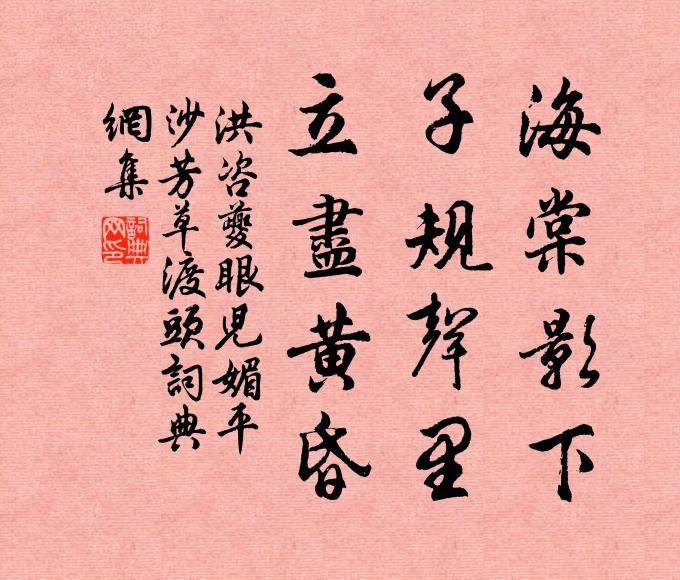 海棠影下
子規聲里
立盡黃昏
洪咨夔眼兒媚平
沙芳草渡頭詞典
網集
詞典
網印